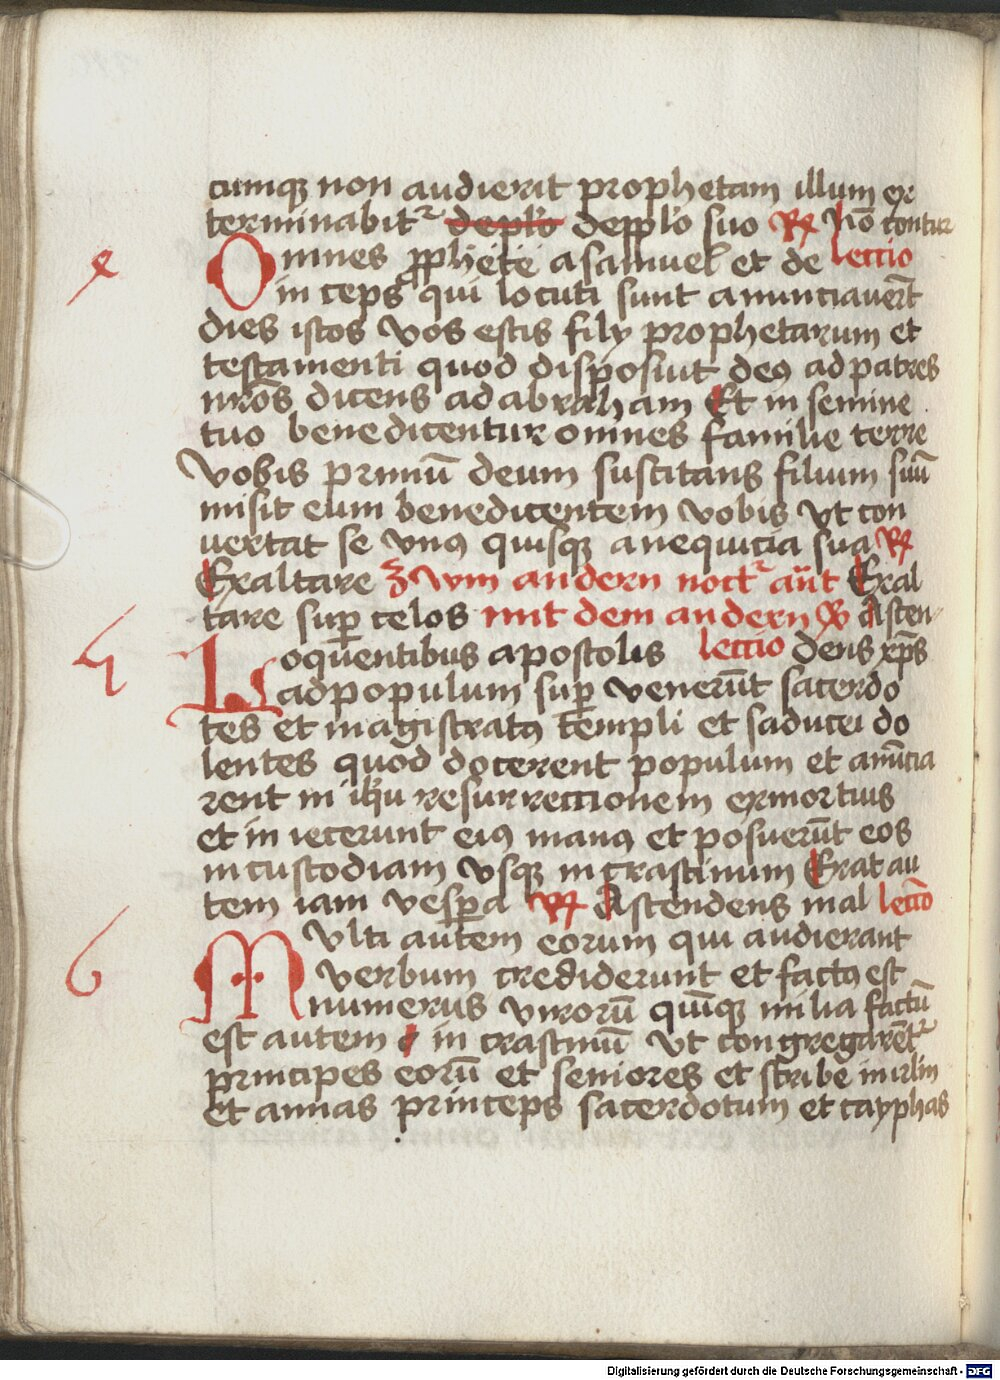 cumqꝫ non audierit prophetam illum ex
terminabitᷣ deplo depplo suo ℟ Nō contur
Omnes ꝓphete a samuel et de lectio
e
in ceps qui locuti sunt anunciauert̄
dies istos vos estis filij prophetarum et
testamenti quod disposuit deꝯ ad patres
nr̄os dicens ad abraham Et in semine
tuo benedicentur omnes familie terre
vobis primū deum suscitans filium suū
misit eum benedicentem vobis vt con
uertat se vnꝯ quisqꝫ a nequicia sua ℟
Exaltare Zwm andern noctᷣ an̄t Exal
tare suꝑ celos mit dem andern ℣ Asten
Loquentibus apostolis lectio dens xp̄s
5
ad populum suꝑ venerūt sacerdo
tes et magistratꝯ templi et saducei do
lentes quod docerent populum et anūcia
rent in ih̄u resurreccionem ex mortuis
et in iecerunt eiꝯ manꝯ et posuerūt eos
in custodiam vsqꝫ in crastinum Erat au
tem iam vespa ℟ Astendens mal lectō
Multi autem eorum qui audierant
6
verbum crediderunt et factꝯ est
numerus virorū quīqꝫ milia factū
est autem in crastinū vt congregarētᷣ
principes eorū et seniores et scribe in irlm
et annas princeps sacerdotum et cayphas
Digitalisierung gefördert durch die Deutsche Forschungsgemeinschaft - DFG